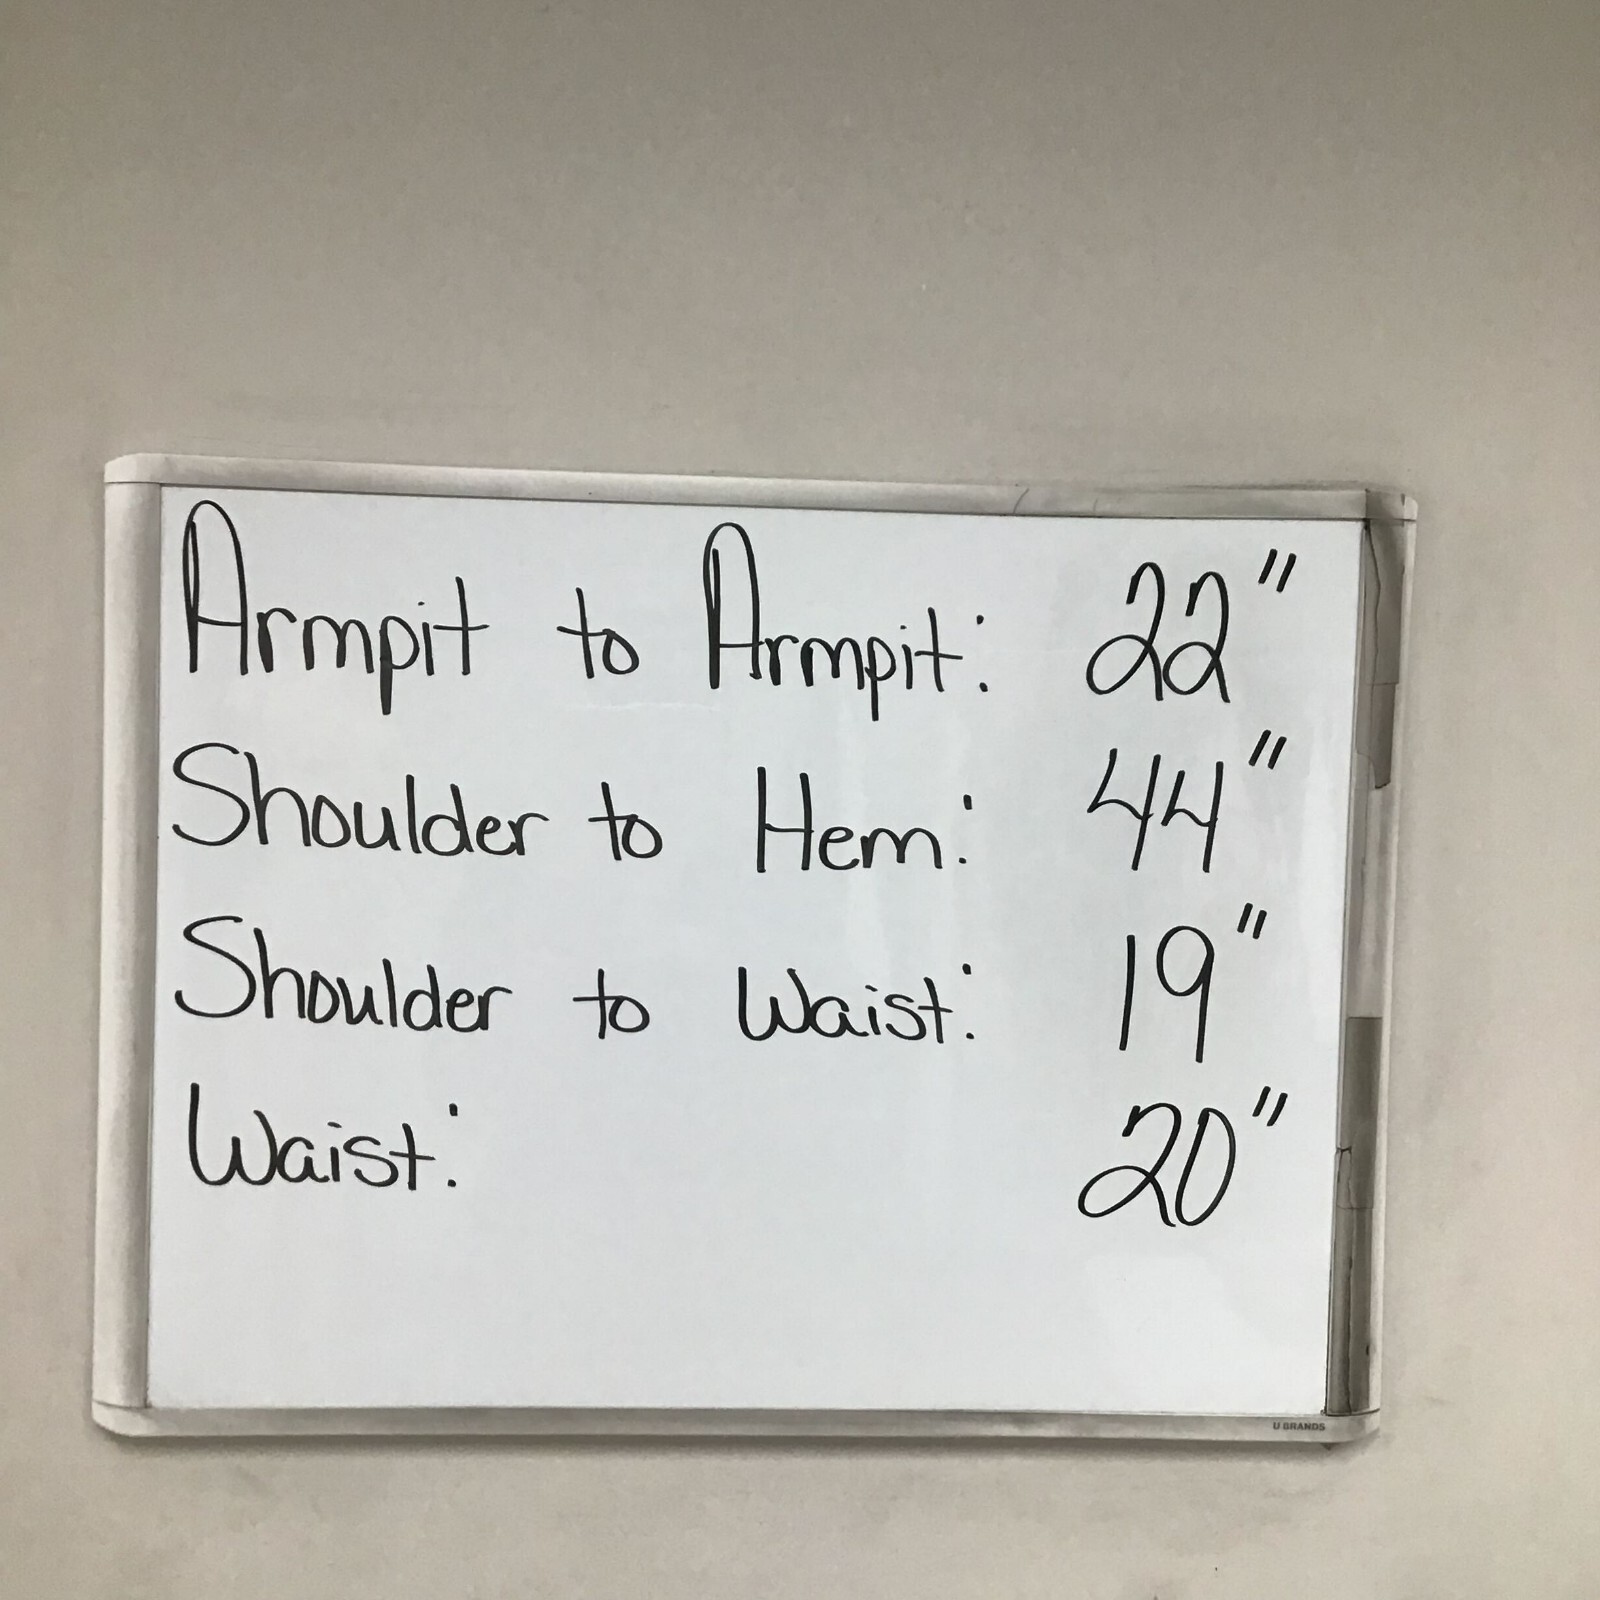 Armpit to Armpit: 22"
Shoulder to Hem: 44"
Shoulder to Waist: 19"
Waist: 20"
U BRANDS